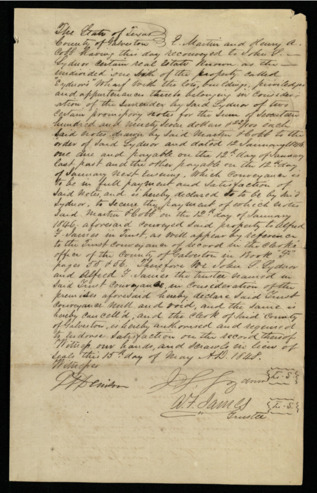 The State of Texas
County of Galveston } E. Martin and Henry A.
Cobb having this day reconveyed to John S.
Sydnor certain real estate known as the
undivided one sixth of the property called
Sydnors Wharf with the Lots, buildings, privileges
and appurtenances thereto belonging in consider-
ation of the surrender by said Sydnor of two
certain promissory notes for the sum of
hundred and dollars each
said notes drawn by said Martin & Cobb to the
order of said Sydnor and dated 12 January 1846
one due and payable on the 12th day of January
last past and the other payable on the 12th day
of January next ensuing, which conveyance is
to be in full payment and satisfaction of
said notes, and is hereby declared so to be by said
Sydnor, to secure the payment of which notes
said Martin & Cobb on the 12th day of January
1846, aforesaid conveyed said property to Alfred
F. James in trust, as will appear by reference
to the Trust conveyance of record in the Clerks
office of the County of Galveston in Book
pages & 56. Therefore We John S. Sydnor
and Alfred F. James the trustee named in
said Trust conveyance, in consideration of the
premises aforesaid hereby declare said Trust
conveyance null and void, and the same is
hereby cancelled, and the Clerk of said County
of Galveston, is hereby authorised and required
to endorse satisfaction on the record thereof
Witness our hands and scrawls in lieu of
seals this 15th day of May A.D. 1848.
Witness
J. S. Sydnor {L.S}
A. F. James {L.S}
Trustee